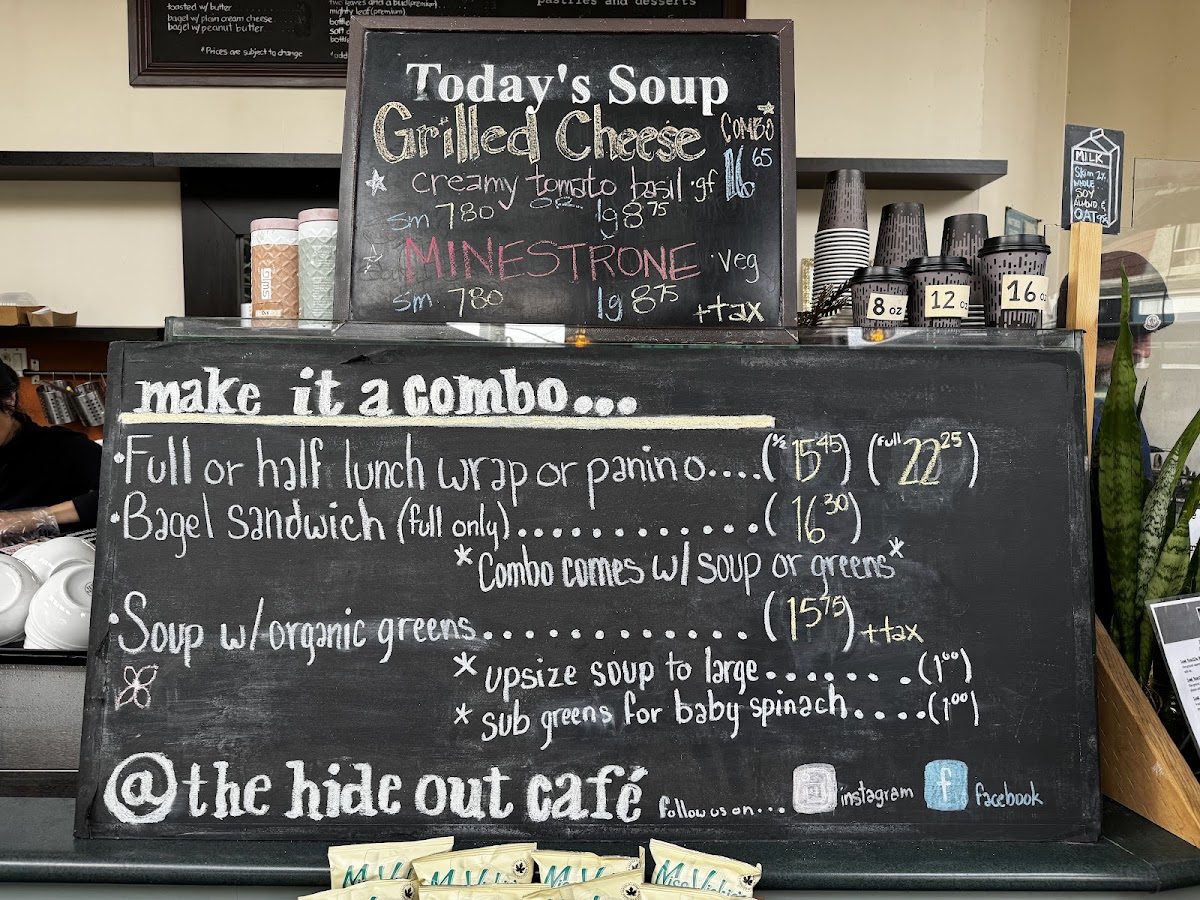 toasted w/ butter
bagel w/ plain cream cheese
bagel w/ peanut butter
*Prices are subject to change
two leaves and a bud (premium)
mighty leaf (premium)
pastries and desserts
Today's Soup
Grilled Cheese COMBO
16 65
creamy tomato basil · gf
sm 7 80 or lg 8 75
MINESTRONE · veg
sm 7 80 lg 8 75 + tax
MILK
Skim 2%
WHOLE
SOY
OAT
8 oz
12 oz
16 oz
make it a combo...
·Full or half lunch wrap or panino....(½ 15 45) (full 22 25)
·Bagel sandwich (full only)............(16 30)
*Combo comes w/ soup or greens*
·Soup w/organic greens............(15 75) + tax
*upsize soup to large.......(1 00)
*sub greens for baby spinach....(1 00)
@the hide out café follow us on... instagram f facebook
Miss Vickie's